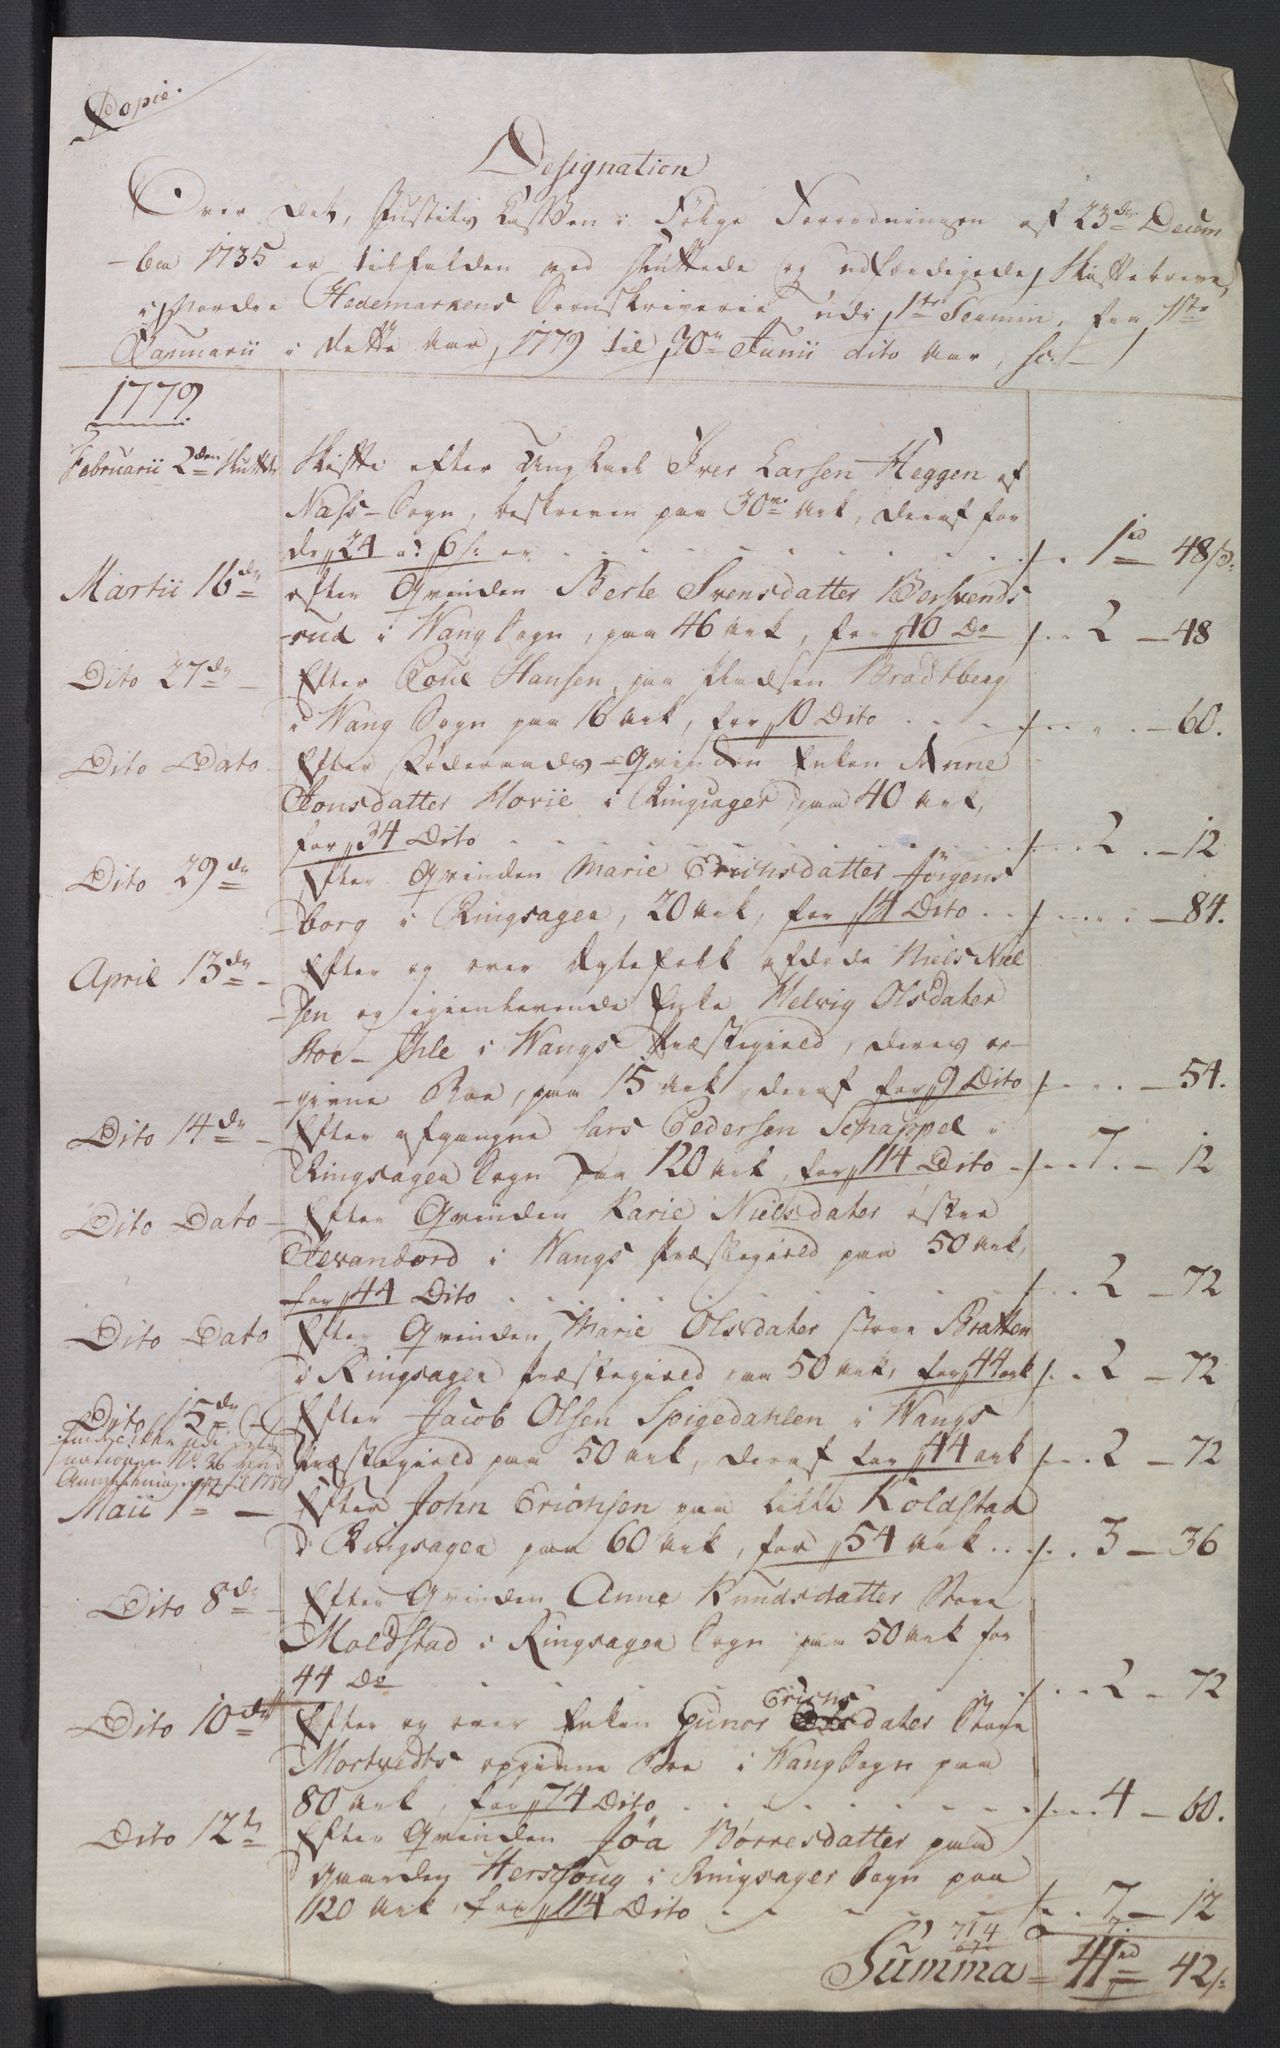 Copie.
Designation
Over det, Justits Cassen i Følge Forordningen af 23de Decem
-ber 1735 er tilfalden ved sluttede og udfærdigede Skiftebreve,
i Nordre Hedemarkens Sorenskriverie udi 1te Termin, fra 1ste
Januarii i dette Aar 1779 til 30te Junii dito Aar,
1779
Februarii 2den sluttet Skifte efter Ungkarl Iver Larsen Heggen af
Næss-Sogn, beskreven paa 30 Ark, deraf for
de 24 a 6 s: er 1rd 48 s:
Martii 16de efter Qvinden Berte Svensdatter Berhvends
-rud i Wang Sogn, paa 46 Ark, for 40 Do 2 - 48
Dito 27de - Efter Poul Hansen paa Pladsen Bradtberg
i Wang Sogn paa 16 Ark, for 10 Dito - 60.
Dito Dato Efter Føderaads-Qvinden Enken Anne
Jonsdatter Hovie i Ringsager paa 40 Ark,
for 34 Dito 2 - 12
Dito 29de Efter Qvinden Marie Erichsdatter Jörgens
-borg i Ringsager, 20 Ark, for 14 Dito - 84.
April 13de - Efter og over Ægtefolk afdøde Niels Niel
-sen og igienlevende Enke Helvig Olsdater
Stoe-Ihle i Wangs Præstegield, deres op-
-givne Boe, paa 15 Ark, deraf for 9 Dito - 54.
Dito 14de - Efter afgangne Lars Pedersen Schappel i
Ringsager Sogn paa 120 Ark, for 114 Dito 7 - 12
Dito Dato - Efter Qvinden Karie Nielsdater østre
Jevanbord i Wangs Præstegield paa 50 Ark,
for 44 Dito 2 - 72
Dito Dato Efter Qvinden Marie Olsdater store Bratten
i Ringsager Præstegield paa 50 Ark, for 44 Ark 2 - 72
Dito 15de Efter Jacob Olsen Spigedahlen i Wangs
Præstegield paa 50 Ark, deraf for 44 Ark 2 - 72
findes ikke udi
No. 26
Maii 1te - Efter John Erichsen paa lille Koldstad
i Ringsager paa 60 Ark, for 54 Ark 3 - 36
Dito 8de - Efter Qvinden Anne Knudsdatter Store
Moldstad i Ringsager Sogn paa 50 Ark for
44 Do 2 - 72
Dito 10de Efter og over Enken Gunor Erichsdater Store
Mortvedts opgivne Boe i Wang Sogn paa
80 Ark, for 74 Dito 4 - 60.
Dito 12te Efter Qvinden Jöa Börresdatter paa
Gaarden Herschoug i Ringsager Sogn paa
120 Ark, for 114 Dito 7 - 12
714
Summa = 41rd 42 s: